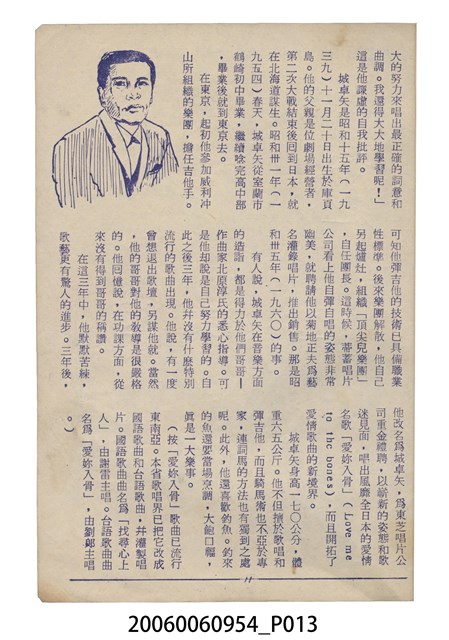 大的努力來唱出最正確的詞意和
曲調。我還得大大地學習呢！」
這是他謙虛的自我批評。
城卓矢是昭和十五年（一九
三九）十一月二十日出生於庫頁
島。他的父親是位劇場經營者，
第二次大戰結束後回到日本，就
在北海道謀生。昭和卅一年（一
九五四）春天，城卓矢從室蘭市
鶴崎初中畢業，繼續唸完高中部
，畢業後就到東京去。
在東京，起初他參加威利冲
山所組織的樂團，擔任吉他手。
可知他彈吉他的技術已具備職業
性標準。後來樂團解散，他自己
另起爐灶，組織「頂尖兒樂團」
，自任團長。這時候，蒂蓄唱片
公司看上他自彈自唱的姿態非常
幽美，就聘請他以菊地正夫爲藝
名灌錄唱片，推出銷售。那是昭
和卅五年（一九六〇）的事。
有人說，城卓矢在音樂方面
的造詣，都是得力於他們哥哥—
作曲家北原淳氏的悉心指導。可
是他却說是自己努力學習的。自
此之後三年，他幷沒有什麽特別
流行的歌曲出現。他說，有一度
曾想退出歌壇，另謀他就。當然
，他的哥哥對他的教導是很嚴格
的。他回憶說，在功課方面，從
來沒有得到哥哥的稱讚。
在這三年中，他默默苦練，
歌藝更有驚人的進步。三年後，
他改名爲城卓矢，爲東芝唱片公
司重金禮聘，以嶄新的姿態和歌
迷見面，唱出風靡全日本的愛情
名歌「愛妳入骨」（Love me
to the bones），而且開拓了
愛情歌曲的新境界。
城卓矢身高一七〇公分，體
重六五公斤。他不但擅於歌唱和
彈吉他，而且騎馬術也不亞於專
家，連詞馬的方法也有獨到之處
呢。此外，他還喜歡釣魚。釣來
的魚還要當場烹調，大飽口福，
眞是一大樂事。
（按「愛妳入骨」歌曲已流行
東南亞。本省歌唱界已把它改成
國語歌曲和台語歌曲，幷灌製唱
片。國語歌曲曲名爲「找尋心上
人」，由謝雷主唱。台語歌曲曲
名爲「愛妳入骨」，由劉鄭主唱
。）
11
20060060954_P013